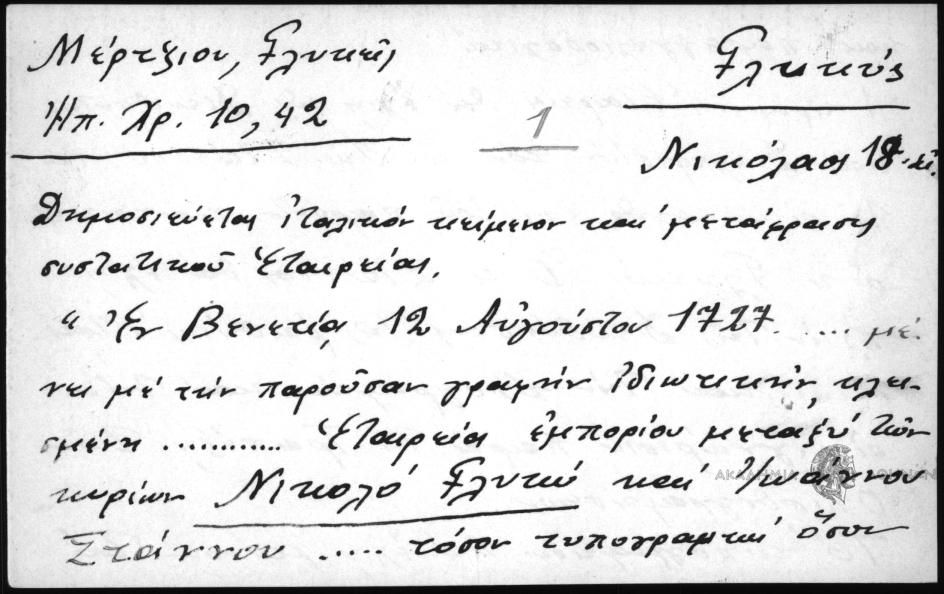 Μέρτζιου, Γλυκεῖς
Ἠπ. Χρ. 10, 42
1
Γλυκύς
Νικόλαος 18.αἰ.
Δημοσιεύεται ἰταλικόν κείμενον καί μετάφρασις
συστατικοῦ Ἑταιρείας.
" Ἐν Βενετίᾳ 12 Αὐγούστου 1727. .... μέ-
νει μέ τήν παροῦσαν γραφήν ἰδιωτικήν κλει-
σμένη ........... Ἑταιρεία ἐμπορίου μεταξύ τῶν
κυρίων Νικολό Γλυκύ καί Ἰωάννου
Στάννου ..... τόσον τυπογραφικά ὅσον
ΑΚΑΔΗΜΙΑ ΑΘΗΝΩΝ